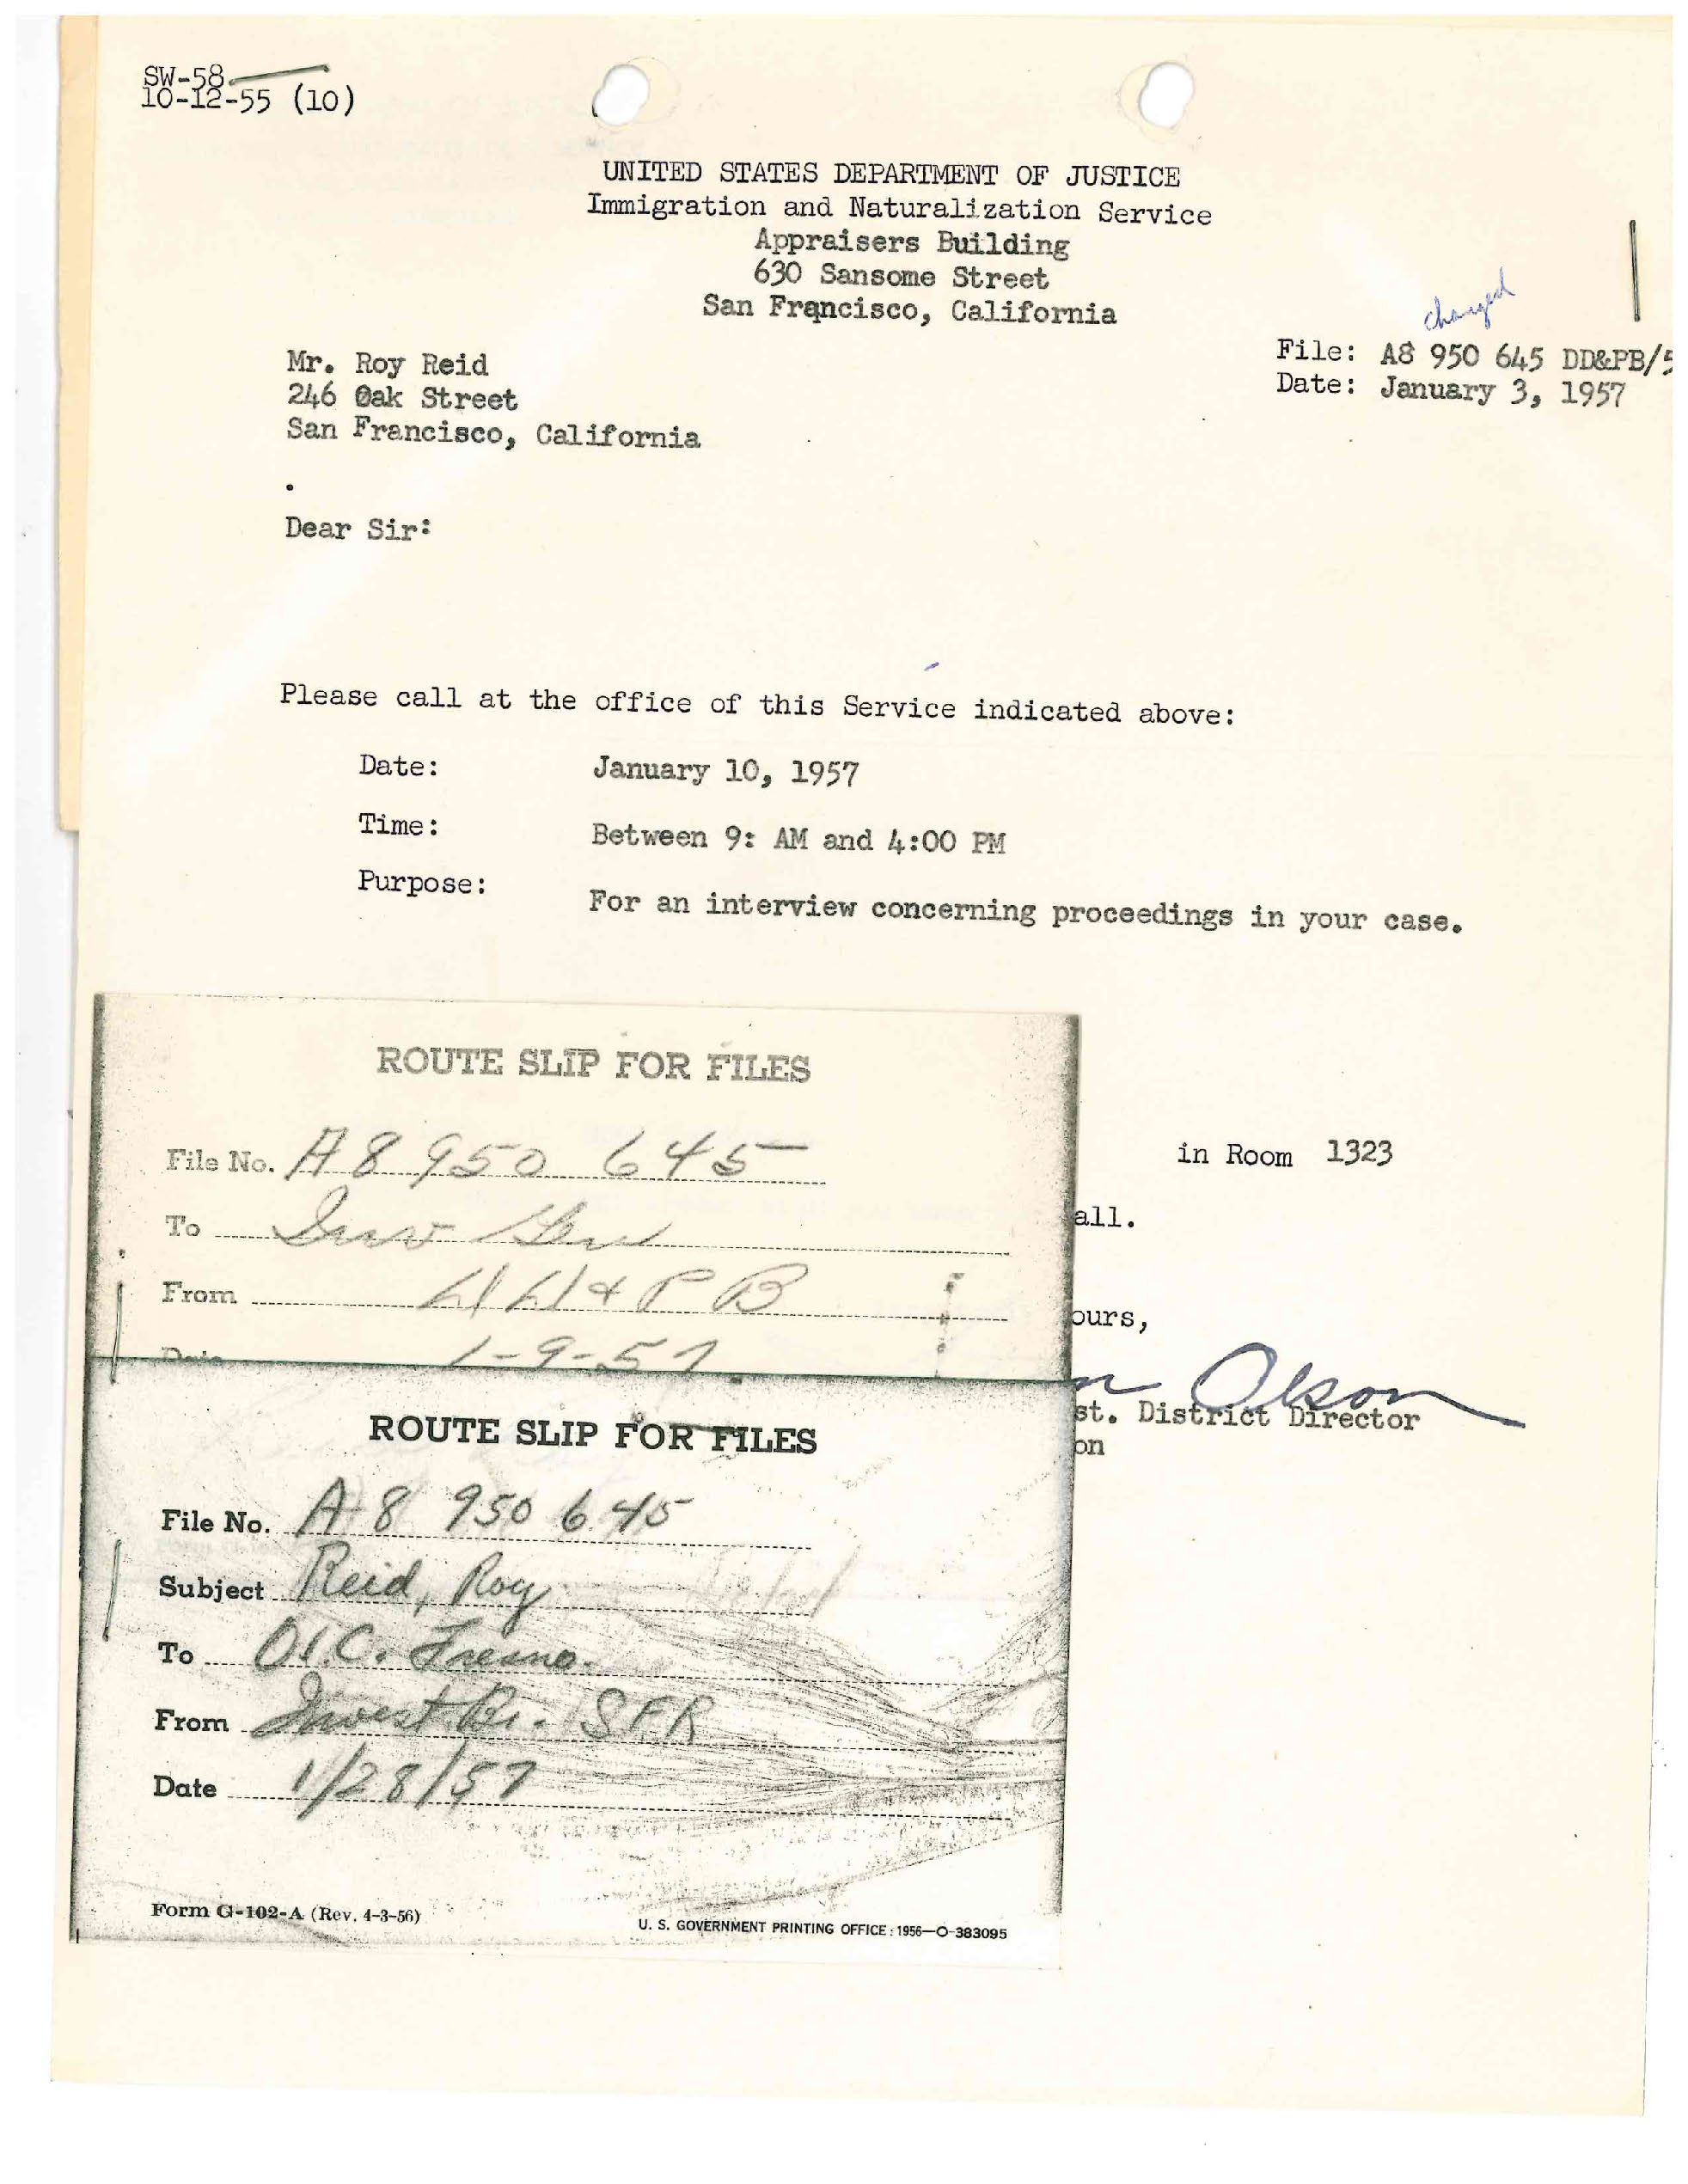 SW-58
10-12-55 (10)
UNITED STATES DEPARTMENT OF JUSTICE
Immigration and Naturalization Service
Appraisers Building
630 Sansome Street
San Francisco, California
changed
File: A8 950 645 DD&PB/5
Date: January 3, 1957
Mr. Roy Reid
246 Oak Street
San Francisco, California
.
Dear Sir:
Please call at the office of this Service indicated above:
Date: January 10, 1957
Time: Between 9: AM and 4:00 PM
Purpose: For an interview concerning proceedings in your case.
in Room 1323
all.
ours,
Olson
st. District Director
on
ROUTE SLIP FOR FILES
File No. A8 950 645
To Inv Gen
From DD&PB
Date 1-9-57
ROUTE SLIP FOR FILES
File No. A8 950 645
Subject Reid, Roy
To O.I.C. Fresno.
From Invest. Br. SFR
Date 1/28/57
Form G-102-A (Rev. 4-3-56)
U. S. GOVERNMENT PRINTING OFFICE : 1956—O-383095